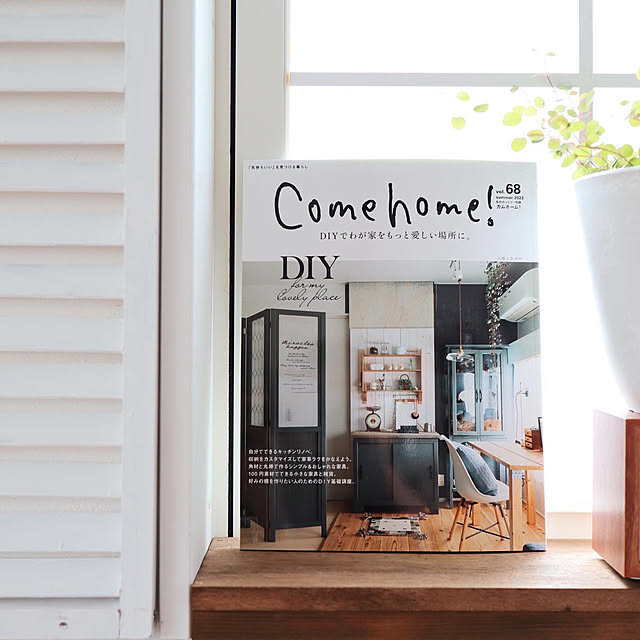 「気持ちいい」を見つける暮らし
Come home!
vol. 68
summer 2022
カムホーム!
DIYでわが家をもっと愛しい場所に。
DIY
for my
lovely place
自分でできるキッチンリノベ。
収納をカスタマイズして家事ラクをかなえよう。
角材と丸棒で作るシンプル&おしゃれな家具。
100円素材でできる小さな家具と雑貨。
好みの棚を作りたい人のためのDIY基礎講座。